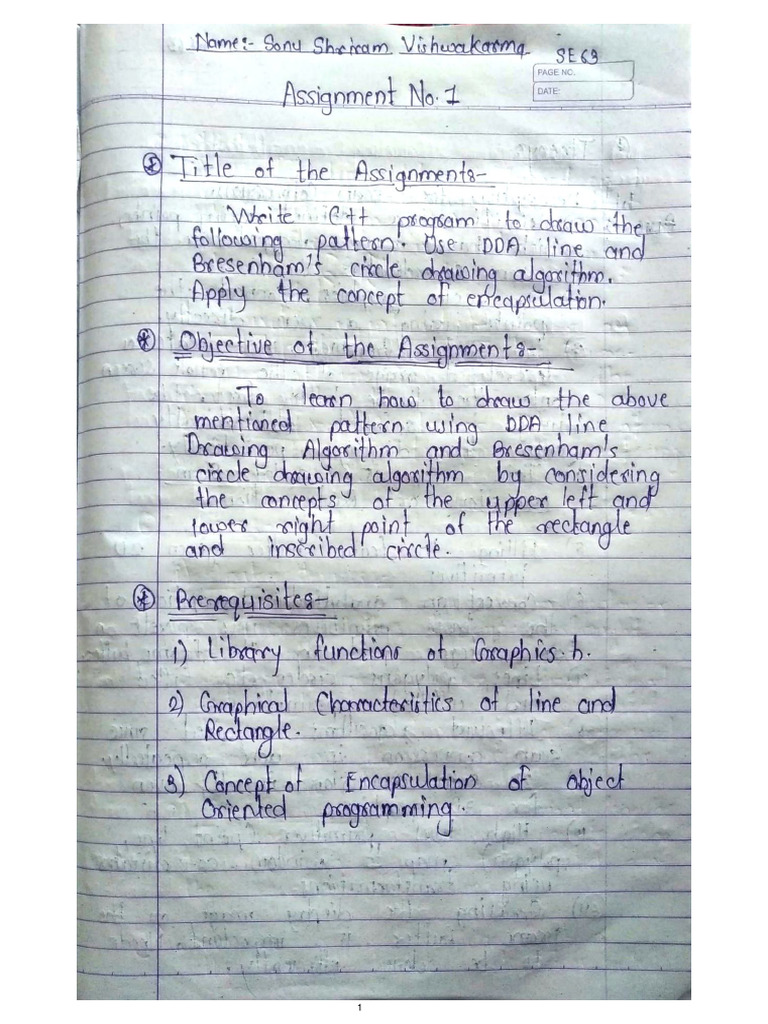 Name:- Sonu Shriram Vishwakarma
SE69
PAGE NO.
DATE:
Assignment No. 1
Title of the Assignment:-
Write C++ program to draw the
following pattern. Use DDA line and
Bresenham's circle drawing algorithm.
Apply the concept of encapsulation.
Objective of the Assignment:-
To learn how to draw the above
mentioned pattern using DDA line
Drawing Algorithm and Bresenham's
circle drawing algorithm by considering
the concepts of the upper left and
lower right point of the rectangle
and inscribed circle.
Prerequisites:-
1) Library functions of Graphics.h.
2) Graphical Characteristics of line and
Rectangle.
3) Concept of Encapsulation of object
Oriented programming.
1